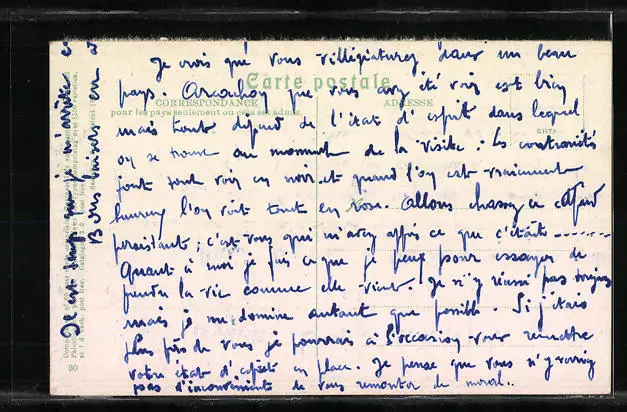 Je vois que vous villégiaturez dans un beau
Carte postale
pays. Arcachon que vous avez été voir est bien
CORRESPONDANCE
ADRESSE
pour les pays seulement ou cela est admis.
mais tout dépend de l'état d'esprit dans lequel
on se trouve au moment de la visite : les contrariétés
font tout voir en noir et quand l'on est vraiment
heureux l'on voit tout en rose. Allons chassez ce cafard
persistant ; c'est vous qui m'avez appris ce que c'était
Quant à moi je fais ce que je peux pour essayer de
prendre la vie comme elle vient. Je n'y réussi pas toujours
mais je me domine autant que possible. Si j'étais
plus près de vous je pourrais à l'occasion vous remettre
votre état d'esprit en place. Je pense que vous n'y verriez
pas d'inconvénients de vous remonter de moral..
Il est temps que je m'arrête
Bons baisers en